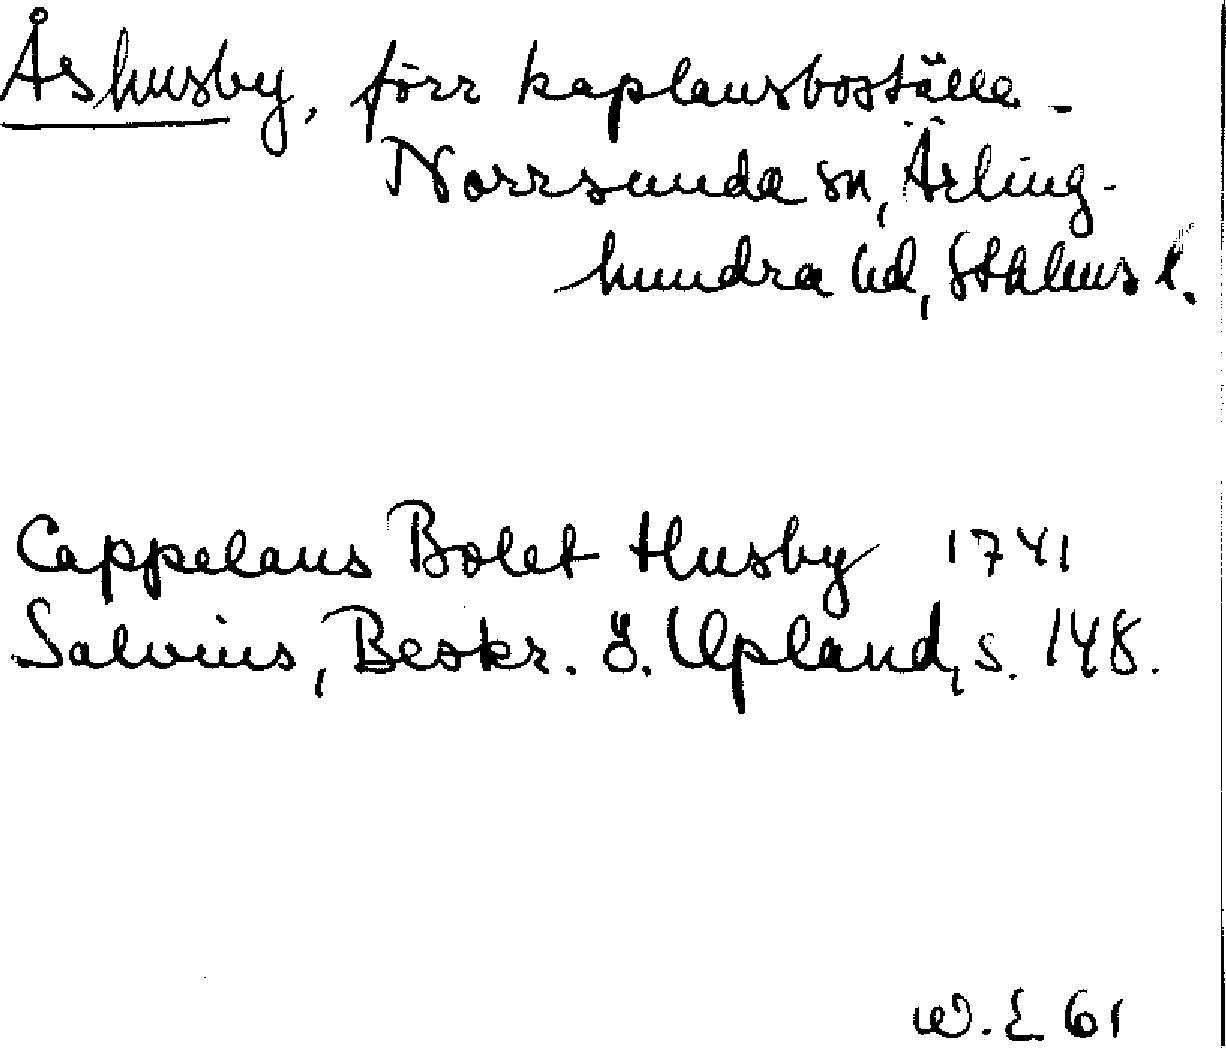 Åshusby, förr kaplansboställe -
Norrsunda sn, Ärling-
hundra hd, Sthlms l.
Cappelans Bolet Husby 1741
Salvius, Beskr. ö. Upland, s. 148.
W. E 61